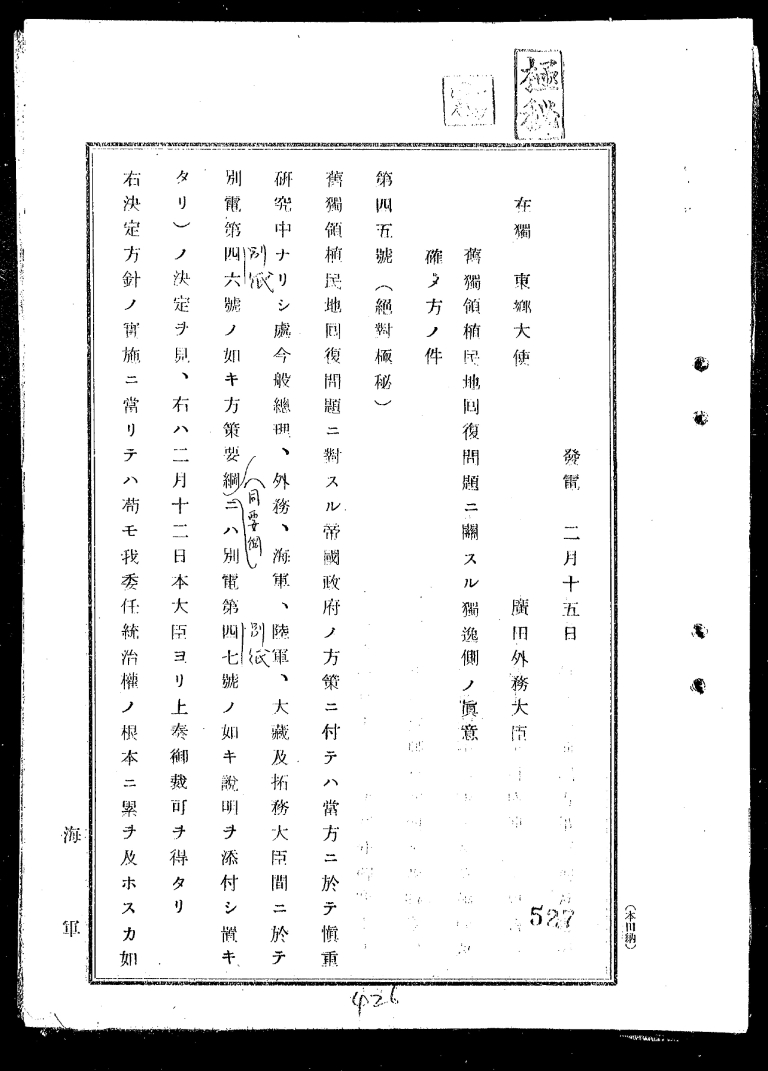 極秘
發電 二月十五日
廣田外務大臣
在獨 東鄉大使
舊獨領植民地回復問題ニ關スル獨逸側ノ眞意
確メ方ノ件
第四五號(絕對極秘)
舊獨領植民地回復問題ニ對スル帝國政府ノ方策ニ付テハ當方ニ於テ愼重
研究中ナリシ處今般總理、外務、海軍、陸軍、大藏及拓務大臣間ニ於テ
別紙
別紙
別電第四六號ノ如キ方策要綱
(同要綱)
ニハ別電第四七號ノ如キ說明ヲ添付シ置キ
タリ)ノ決定ヲ見、右ハ二月十二日本大臣ヨリ上奏御裁可ヲ得タリ
右決定方針ノ實施ニ當リテハ苟モ我委任統治權ノ根本ニ累ヲ及ホスカ如
海軍
527
(本田納)
426